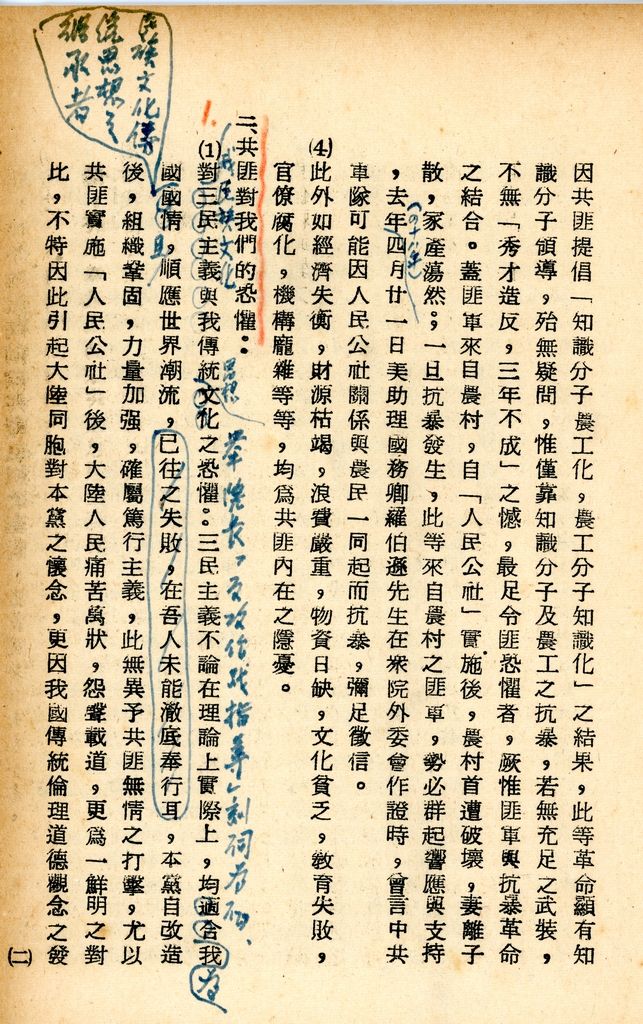 因共匪提倡「知識分子農工化，農工分子知識化」之結果，此等革命顯有知
識分子領導，殆無疑問，惟僅靠知識分子及農工之抗暴，若無充足之武裝，
不無「秀才造反，三年不成」之憾，最足令匪恐懼者，厥惟匪軍與抗暴革命
之結合。蓋匪軍來自農村，自「人民公社」實施後，農村首遭破壞，妻離子
散，家產蕩然。；一旦抗暴發生，此等來自農村之匪軍，勢必群起響應與支持
，去年四月廿一日美助理國務卿羅伯遜先生在衆院外委會作證時，曾言中共
(四十八年)
軍隊可能因人民公社關係與農民一同起而抗暴，彌足徵信。
(4)此外如經濟失衡，財源枯竭，浪費嚴重，物資日缺，文化貧乏，敎育失敗，
官僚腐化，機構龐雜等等，均爲共匪內在之隱憂。
1.
二、共匪對我們的恐懼：
民族文化
思想
(1)對三民主義與我傳統文化之恐懼：三民主義不論在理論上實際上，均適合我
國國情，順應世界潮流，已往之失敗，在吾人未能澈底奉行耳，本黨自改造
且
爲
民族文化傳
統思想之
繼承者
後，組織鞏固，力量加强，確屬篤行主義，此無異予共匪無情之打擊，尤以
共匪實施「人民公社」後，大陸人民痛苦萬狀，怨聲載道，更爲一鮮明之對
比，不特因此引起大陸同胞對本黨之懷念，更因我國傳統倫理道德觀念之發
(二)